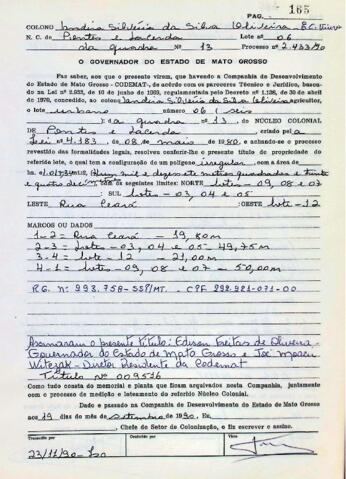 PAG. 165
COLONO Sandra Silveira da Silva Oliveira
N. C. de Pontes e Lacerda Lote nº 06
da quadra Nº 13 Processo nº 2.433/90
O GOVERNADOR DO ESTADO DE MATO GROSSO
Faz saber, aos que o presente virem, que havendo a Companhia de Desenvolvimento
do Estado de Mato Grosso - CODEMAT-, de acôrdo com os pareceres Técnico e Jurídico, busca-
do na Lei nº 2.933, de 10 de junho 1969, regulamentada pelo Decreto nº 1.138, de 30 de abril
de 1970, concedido, ao colono Sandra Silveira da Silva Oliveira agricultor,
o lote urbano número 06 (seis
): da quadra nº 13. DO NÚCLEO COLONIAL
DE Pontes e Lacerda criado pela
Lei nº 4.183, de 08 de maio de 1980, e achando-se o processo
revestido das formalidades legais, resolveu conferir-lhe o presente título de propriedade do
referido lote, o qual tem a configuração de um polígono irregular, com a área de
com os seguintes limites: NORTE Lotes - 09, 08 e 07
: SUL Lotes - 03, 04 e 05
LESTE Rua Ceará :OESTE lote - 12
MARCOS OU DADOS
1 - 2 = Rua Ceará - 19,80m
2 - 3 = Lotes - 03, 04 e 05 - 49,75m
3 - 4 = lote - 12 - 21,00m
4 - 1 = Lotes - 09, 08 e 07 - 50,00m
R.G. nº 293.758-SSP/MT. - CPF 292.921-071-00
Assinaram o presente título: Edison Freitas de Oliveira -
Governador do Estado de Mato Grosso e
Diretor Presidente da Codemat
Título nº 009516
Como tudo consta do memorial e planta que ficam arquivados nesta Companhia, juntamente
com o processo de medição e loteamento do referido Núcleo Colonial.
Dado e passado na Companhia de Desenvolvimento do Estado de Mato Grosso
aos 19 dias do mês de setembro de 1990, Eu,
, Chefe do Setor de Colonização, o fiz escrever e assino.
Transcrito por
Conferido por
Visto
23/11/90